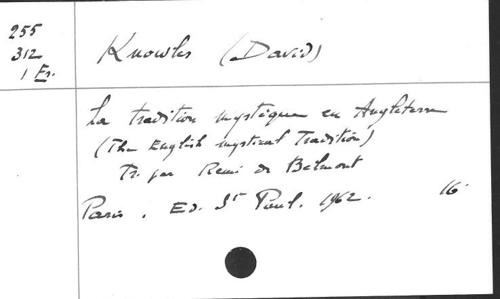 255
312
1 Ex.
Knowles (David)
La tradition mystique en Angleterre
(The English mystical Tradition)
Tr. par Remi de Belmont
Paris. Ed. St Paul. 1962. 16